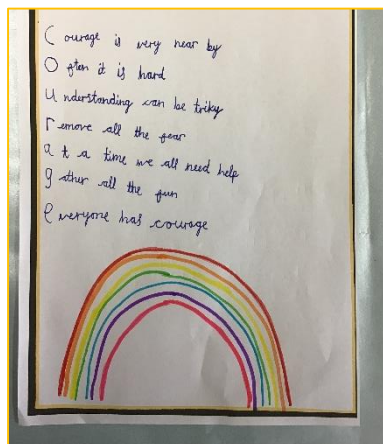 Courage is very near by
Often it is hard
Understanding can be triky
remove all the fear
at a time we all need help
gather all the fun
everyone has courage